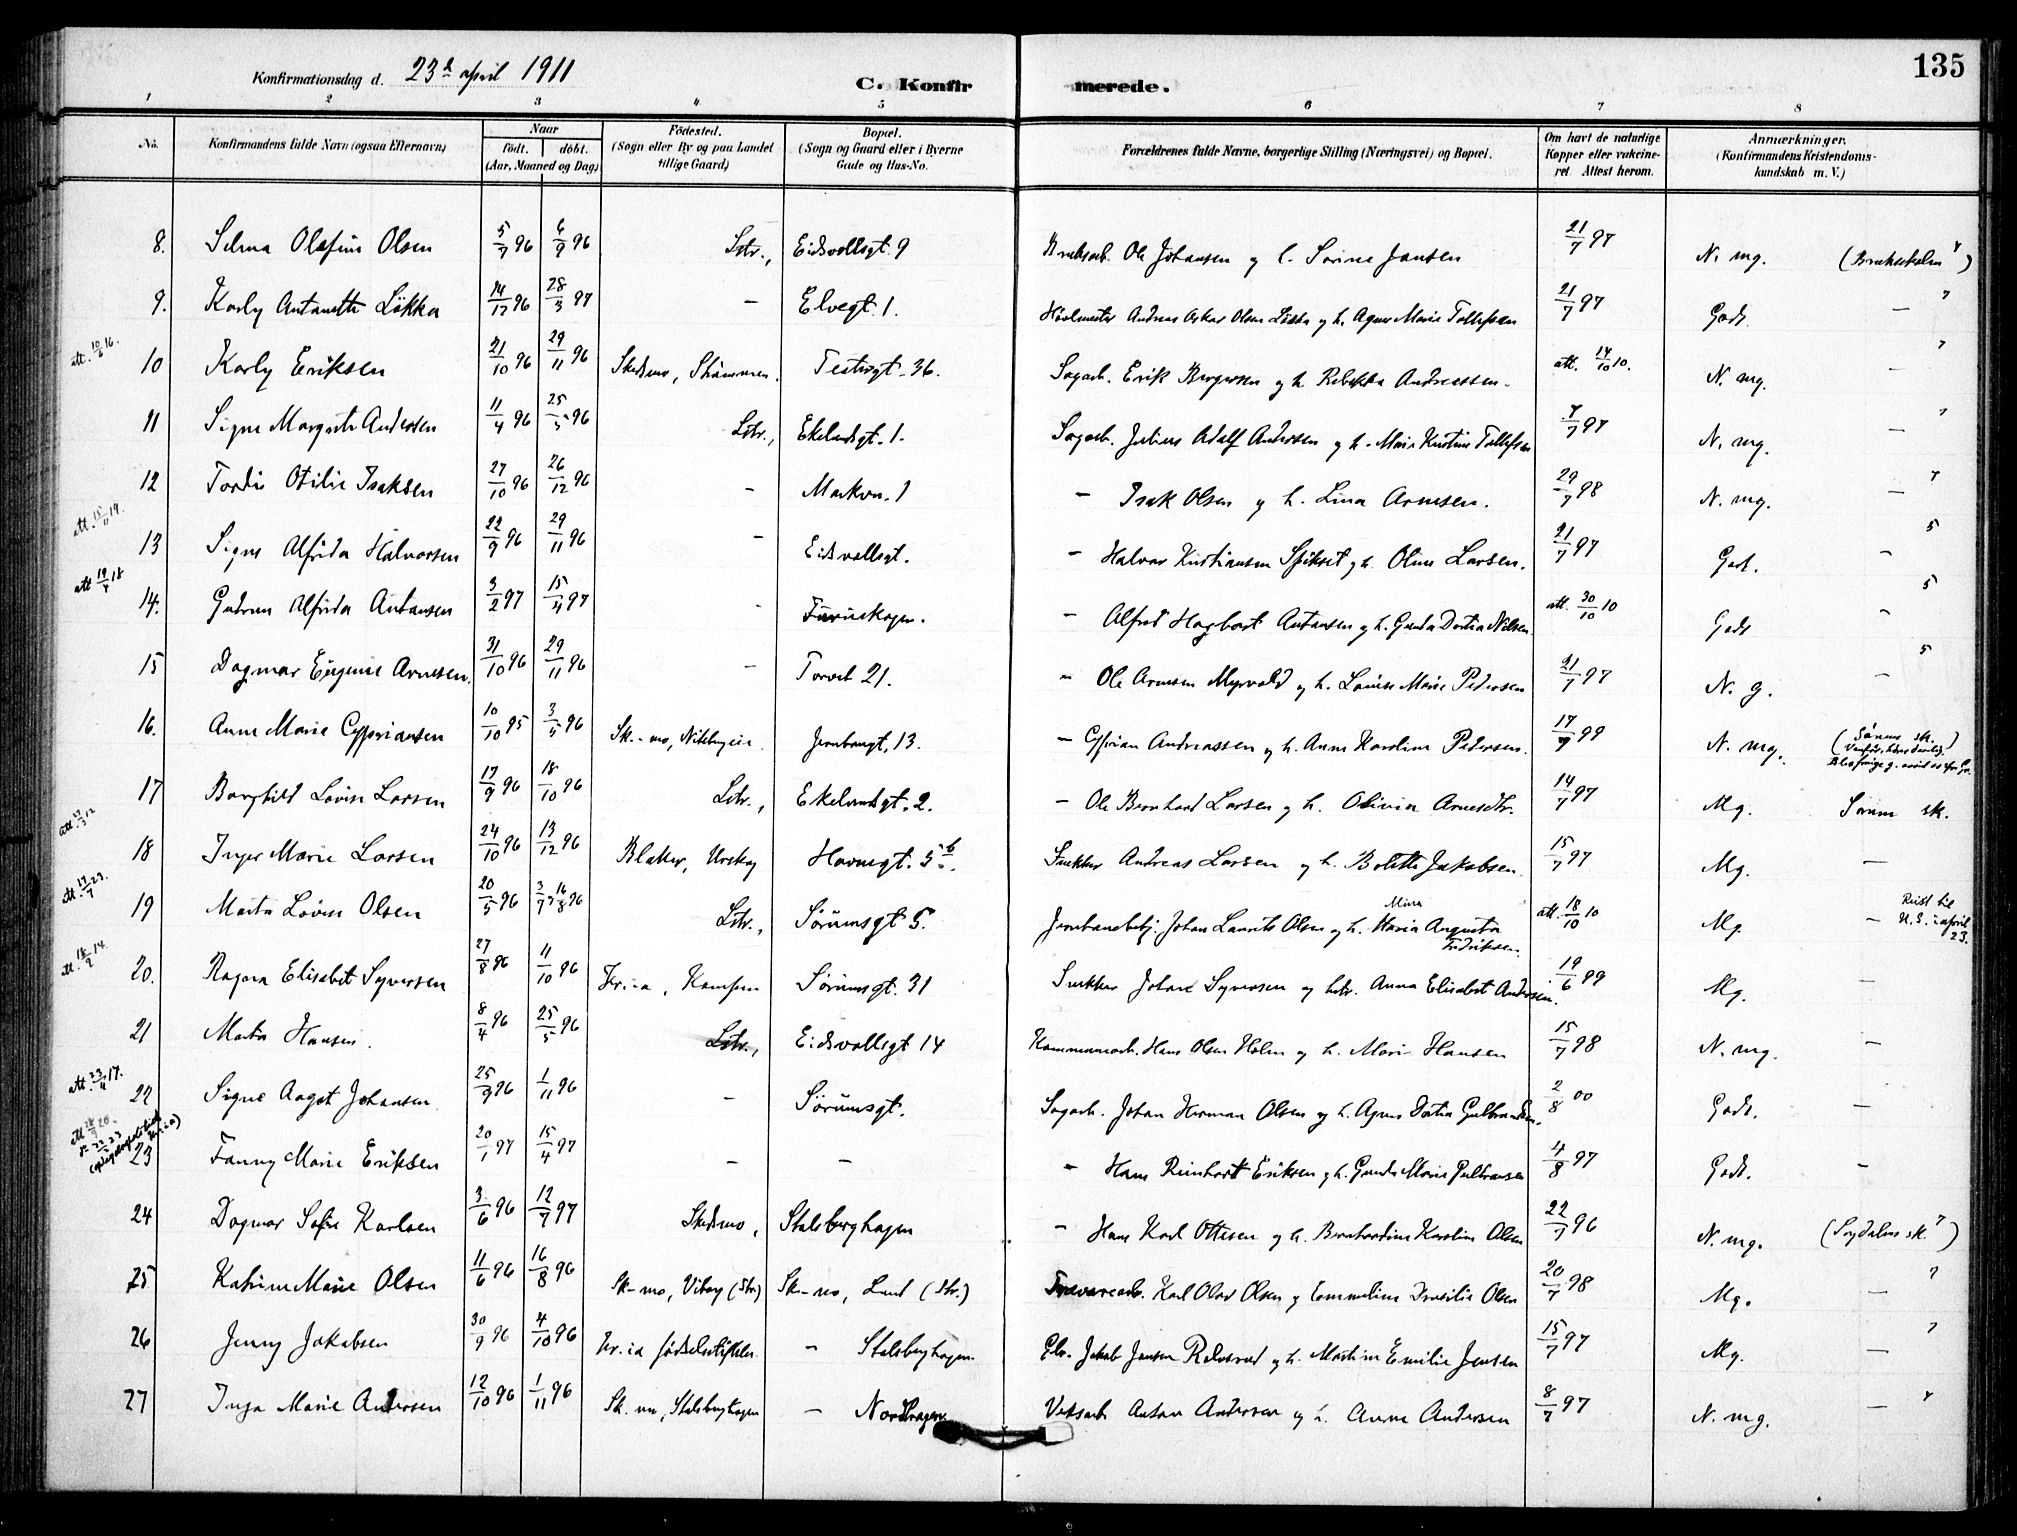 Konfirmationsdag d. 23d april 1911 C. Konfirmerede. 135
1 2 3 4 5 6 7 8
No. Konfirmandens fulde Navn (ogsaa Efternavn) Naar født. døbt. (Aar, Maaned og Dag) Fødested. (Sogn eller By og paa Landet tillige Gaard) Bopæl. (Sogn og Gaard eller i Byerne Gade og Hus-No. Forældrenes fulde Navne, borgerlige Stilling (Næringsvei) og Bopæl. Om havt de naturlige Kopper eller vakcineret Attest herom. Anmærkninger. (Konfirmandens Kristendomskundskab m. V.)
8. Selma Olefine Olsen 5/7 96 6/9 96 Lstr., Eidsvollsgt. 9 Bruksarb. Ole Johansen og h. Sorine Jansen 21/7 97 N. mg.
9. Karly Antonette Løkka 14/12 96 28/3 97 — Elvegt. 1. Høvlmester Andreas Oskar Olsen Løkka og h. Agnes Marie Tollefsen 21/7 97 Godt. —
att. 10/6 16.
10 Karly Eriksen 21/10 96 29/11 96 Skedsmo, Strømmen. 36. Sagarb. Erik Bergersen og h. Rebekka Andreassen. att. 14/10 10. N. mg. —
11 Signe Margrete Andersen 11/4 96 25/5 96 Lstr., Ekelundsgt. 1. Sagarb. Julius Adolf Andersen og h. Marie Kristine Tollefsen 7/7 97 N. mg. —
12 Tordis Otilie Isaksen 27/10 96 26/12 96 — Markvn. 1 — Isak Olsen og h. Lina Arnesen. 29/7 98 N. mg. —
att. 15/11 19.
13 Signe Alfrida Halvorsen 22/9 96 29/11 96 — Eidsvollsgt. — Halvor Kristiansen og h. Oline Larsen. 21/7 97 Godt. —
att 19/4 18
14. Gudrun Alfrida Antonsen 3/2 97 15/4 97 — — Alfred Hagbart Antonsen og h. Gunda Dortea Nilsen att. 30/10 10 Godt —
15 Dagmar Eugenie Arnesen. 31/10 96 29/11 96 — Torvet 21. — Ole Arnesen Myrvold og h. Lovise Marie Pedersen 21/7 97 N. g. —
16. Anne Marie Cypriansen 10/10 95 3/5 96 Sk.-mo, Jernbangt. 13. — Cyprian Andreassen og h. Anne Karoline Pedersen. 17/7 99 N. mg. (Sørum sk.
17 Borghild Lovise Larsen 17/9 96 18/10 96 Lstr., Ekelundsgt. 2. — Ole Bernhard Larsen og h. Olivia Arnesdtr. 14/7 97 Mg. Sørum sk.
18 Inger Marie Larsen 24/10 96 13/12 96 Blaker, Urskog Havnegt. 5b. Snekker Andreas Larsen og h. Bolette Jakobsen. 15/7 97 Mg. —
att. 17/7 23.
19 Marta Lovise Olsen 20/5 96 16/8 96 Lstr., Sørumsgt 5. Jernbanebetj. Johan Laurits Olsen og h. Maria Augusta Fredriksen. att. 18/10 10 Mg. — Reist til U.S. i april 23.
att. 18/2 14.
20. Ragna Elisabet Syversen 27/8 96 11/10 96 Kr.ia, Kampen Sørumsgt. 31 Snekker Johan Syversen og h. Anna Elisabet Andersen. 19/6 99 Mg. —
21 Marta Hansen. 8/4 96 25/5 96 Lstr., Eidsvollsgt 14 Hans Olsen Holm og h. Marie Hansen 15/7 98 N. mg. —
att. 23/4 17.
22 Signe Aagot Johansen 25/9 96 1/11 96 — Sørumsgt. Sagarb. Johan Herman Olsen og h. Agnes Dortea Gulbrandsen. 2/8 00 Godt. —
23 Fanny Marie Eriksen 20/1 97 15/4 97 — — — Hans Reinhart Eriksen og h. Gunda Marie Gulbransen 4/8 97 Godt. —
24 Dagmar Sofie Karlsen 3/6 96 12/7 97 Skedsmo, Stalsberghagen — Hans Karl Ottesen og h. Bernhardine Karoline Olsen 22/7 96 N. mg.
25 Katrine Marie Olsen 11/6 96 16/8 96 Sk-mo, (Str.) Sk-mo, Lund (Str.) Trævarearb. Karl Olav Olsen og Emmeline Olsen 20/7 98 Mg. —
26 Jenny Jakobsen 30/9 96 4/10 96 Kr.ia fødselsstiftelse. — Stalsberghagen. Jakob Jansen og h. Martine Emilie Jensen 15/7 97 Mg. —
27 Inga Marie Andersen 12/10 96 1/11 96 Sk. mo, Stalsberghagen — Nordhagen. Anton Andersen og h. Anne Andersen 8/7 97 N. mg. —